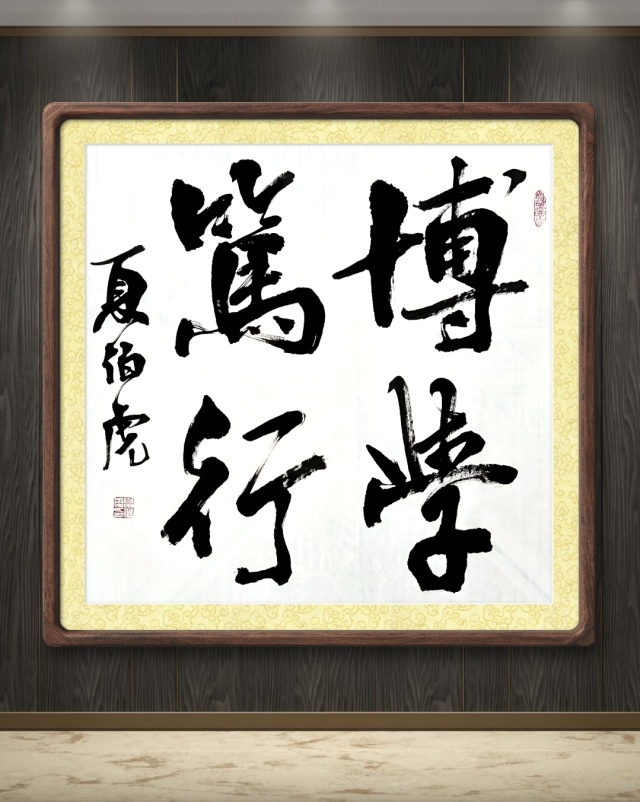 博学
篤行
夏伯虎